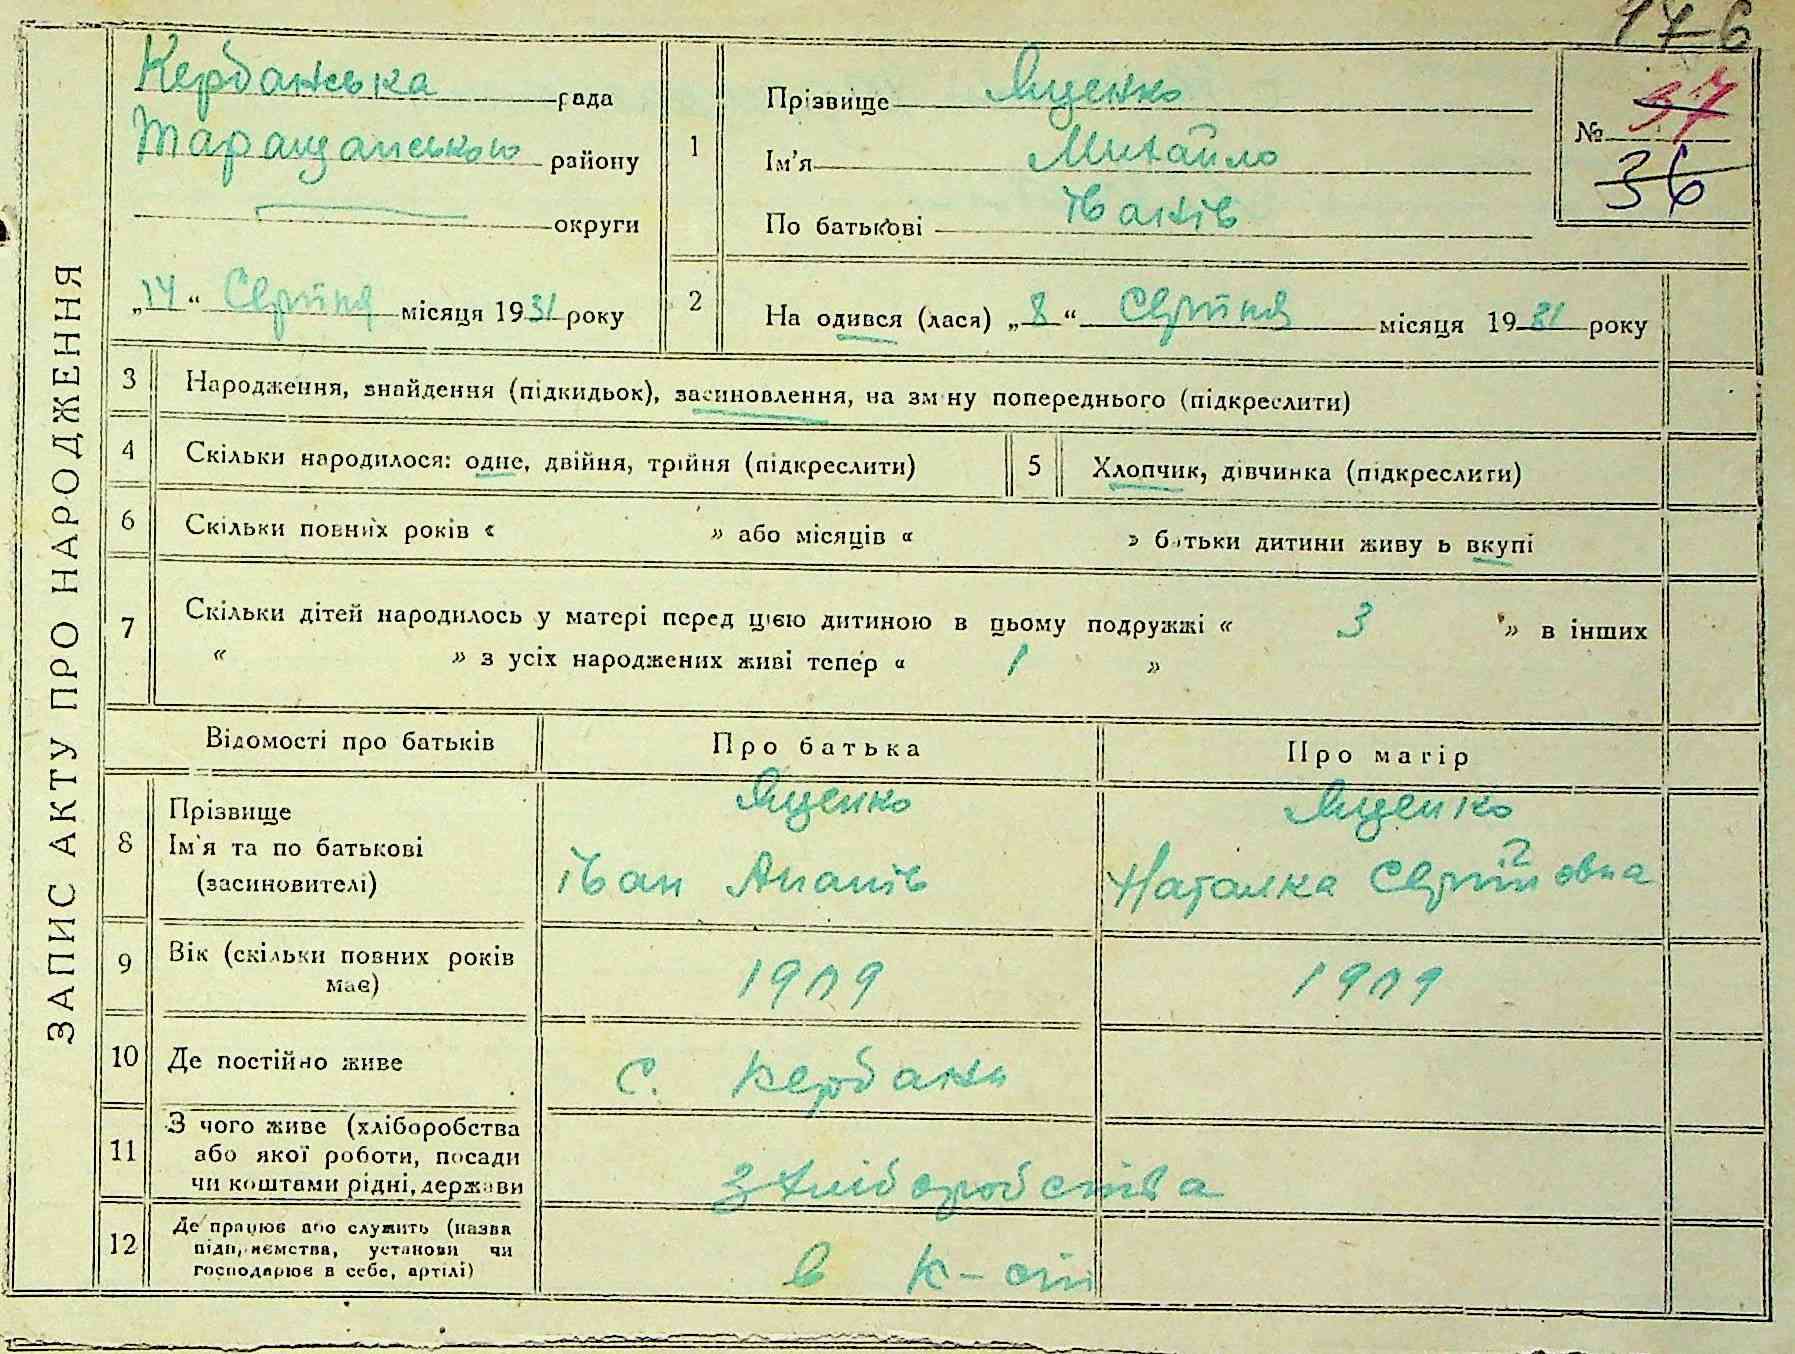 176
ЗАПИС АКТУ ПРО НАРОДЖЕННЯ
Кербанська рада
Таращанського району
округи
„14“ Серпня місяця 1931 року
1
Прізвище Яценко
Ім'я Михайло
По батькові Іванів
№ 37
36
2
На одився (лася) „8“ Серпня місяця 1931 року
3
Народження, знайдення (підкидьок), засиновлення, на зм ну попереднього (підкреслити)
4
Скільки народилося: одне, двійня, трійня (підкреслити)
5
Хлопчик, дівчинка (підкреслити)
6
Скільки повних років « » або місяців « » батьки дитини живу ь вкупі
7
Скільки дітей народилось у матері перед цією дитиною в цьому подружжі « 3 » в інших
« » з усіх народжених живі тепер « 1 »
Відомості про батьків
Про батька
Про матір
8
Прізвище
Ім'я та по батькові
(засиновителі)
Яценко
Іван Ананів
Яценко
Наталка Сергіївна
9
Вік (скільки повних років
має)
1909
1909
10
Де постійно живе
с. Кербани
11
З чого живе (хліборобства
або якої роботи, посади
чи коштами рідні, держави
з хліборобства
12
Де працює або служить (назва
підприємства, установи чи
господарює в себе, артілі)
в к-сп